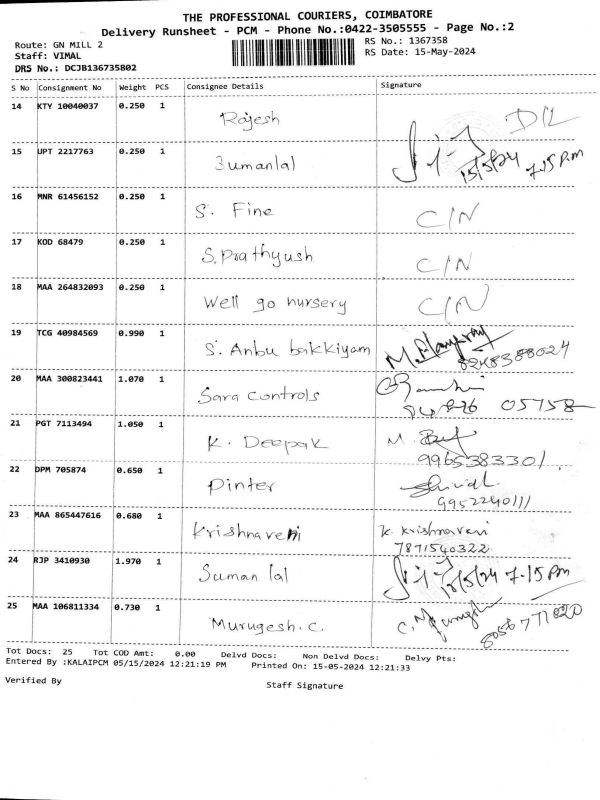 THE PROFESSIONAL COURIERS, COIMBATORE
Delivery Runsheet - PCM - Phone No.:0422-3505555 - Page No.:2
Route: GN MILL 2
Staff: VIMAL
DRS No.: DCJB136735802
RS No.: 1367358
RS Date: 15-May-2024
S No Consignment No Weight PCS Consignee Details Signature
14 KTY 10040037 0.250 1 Rajesh D/L
15 UPT 2217763 0.250 1 Sumanlal 15/5/24 7.15 P.m
16 MNR 61456152 0.250 1 S. Fine C/N
17 KOD 68479 0.250 1 S. Prathyush C/N
18 MAA 264832093 0.250 1 Well go nursery C/N
19 TCG 40984569 0.990 1 S. Anbu bakkiyam 8248388024
20 MAA 300823441 1.070 1 Sara Controls 05758
21 PGT 7113494 1.050 1 K. Deepak M. 9965383301
22 DPM 705874 0.650 1 Pinter 9952240111
23 MAA 865447616 0.680 1 Krishnaveni K. Krishnaveni
7871540322
24 RJP 3410930 1.970 1 Suman lal 15/5/24 7.15 Pm
25 MAA 106811334 0.730 1 Murugesh.C. C. 8056771820
Tot Docs: 25 Tot COD Amt: 0.00 Delvd Docs: Non Delvd Docs: Delvy Pts:
Entered By :KALAIPCM 05/15/2024 12:21:19 PM Printed On: 15-05-2024 12:21:33
Verified By Staff Signature